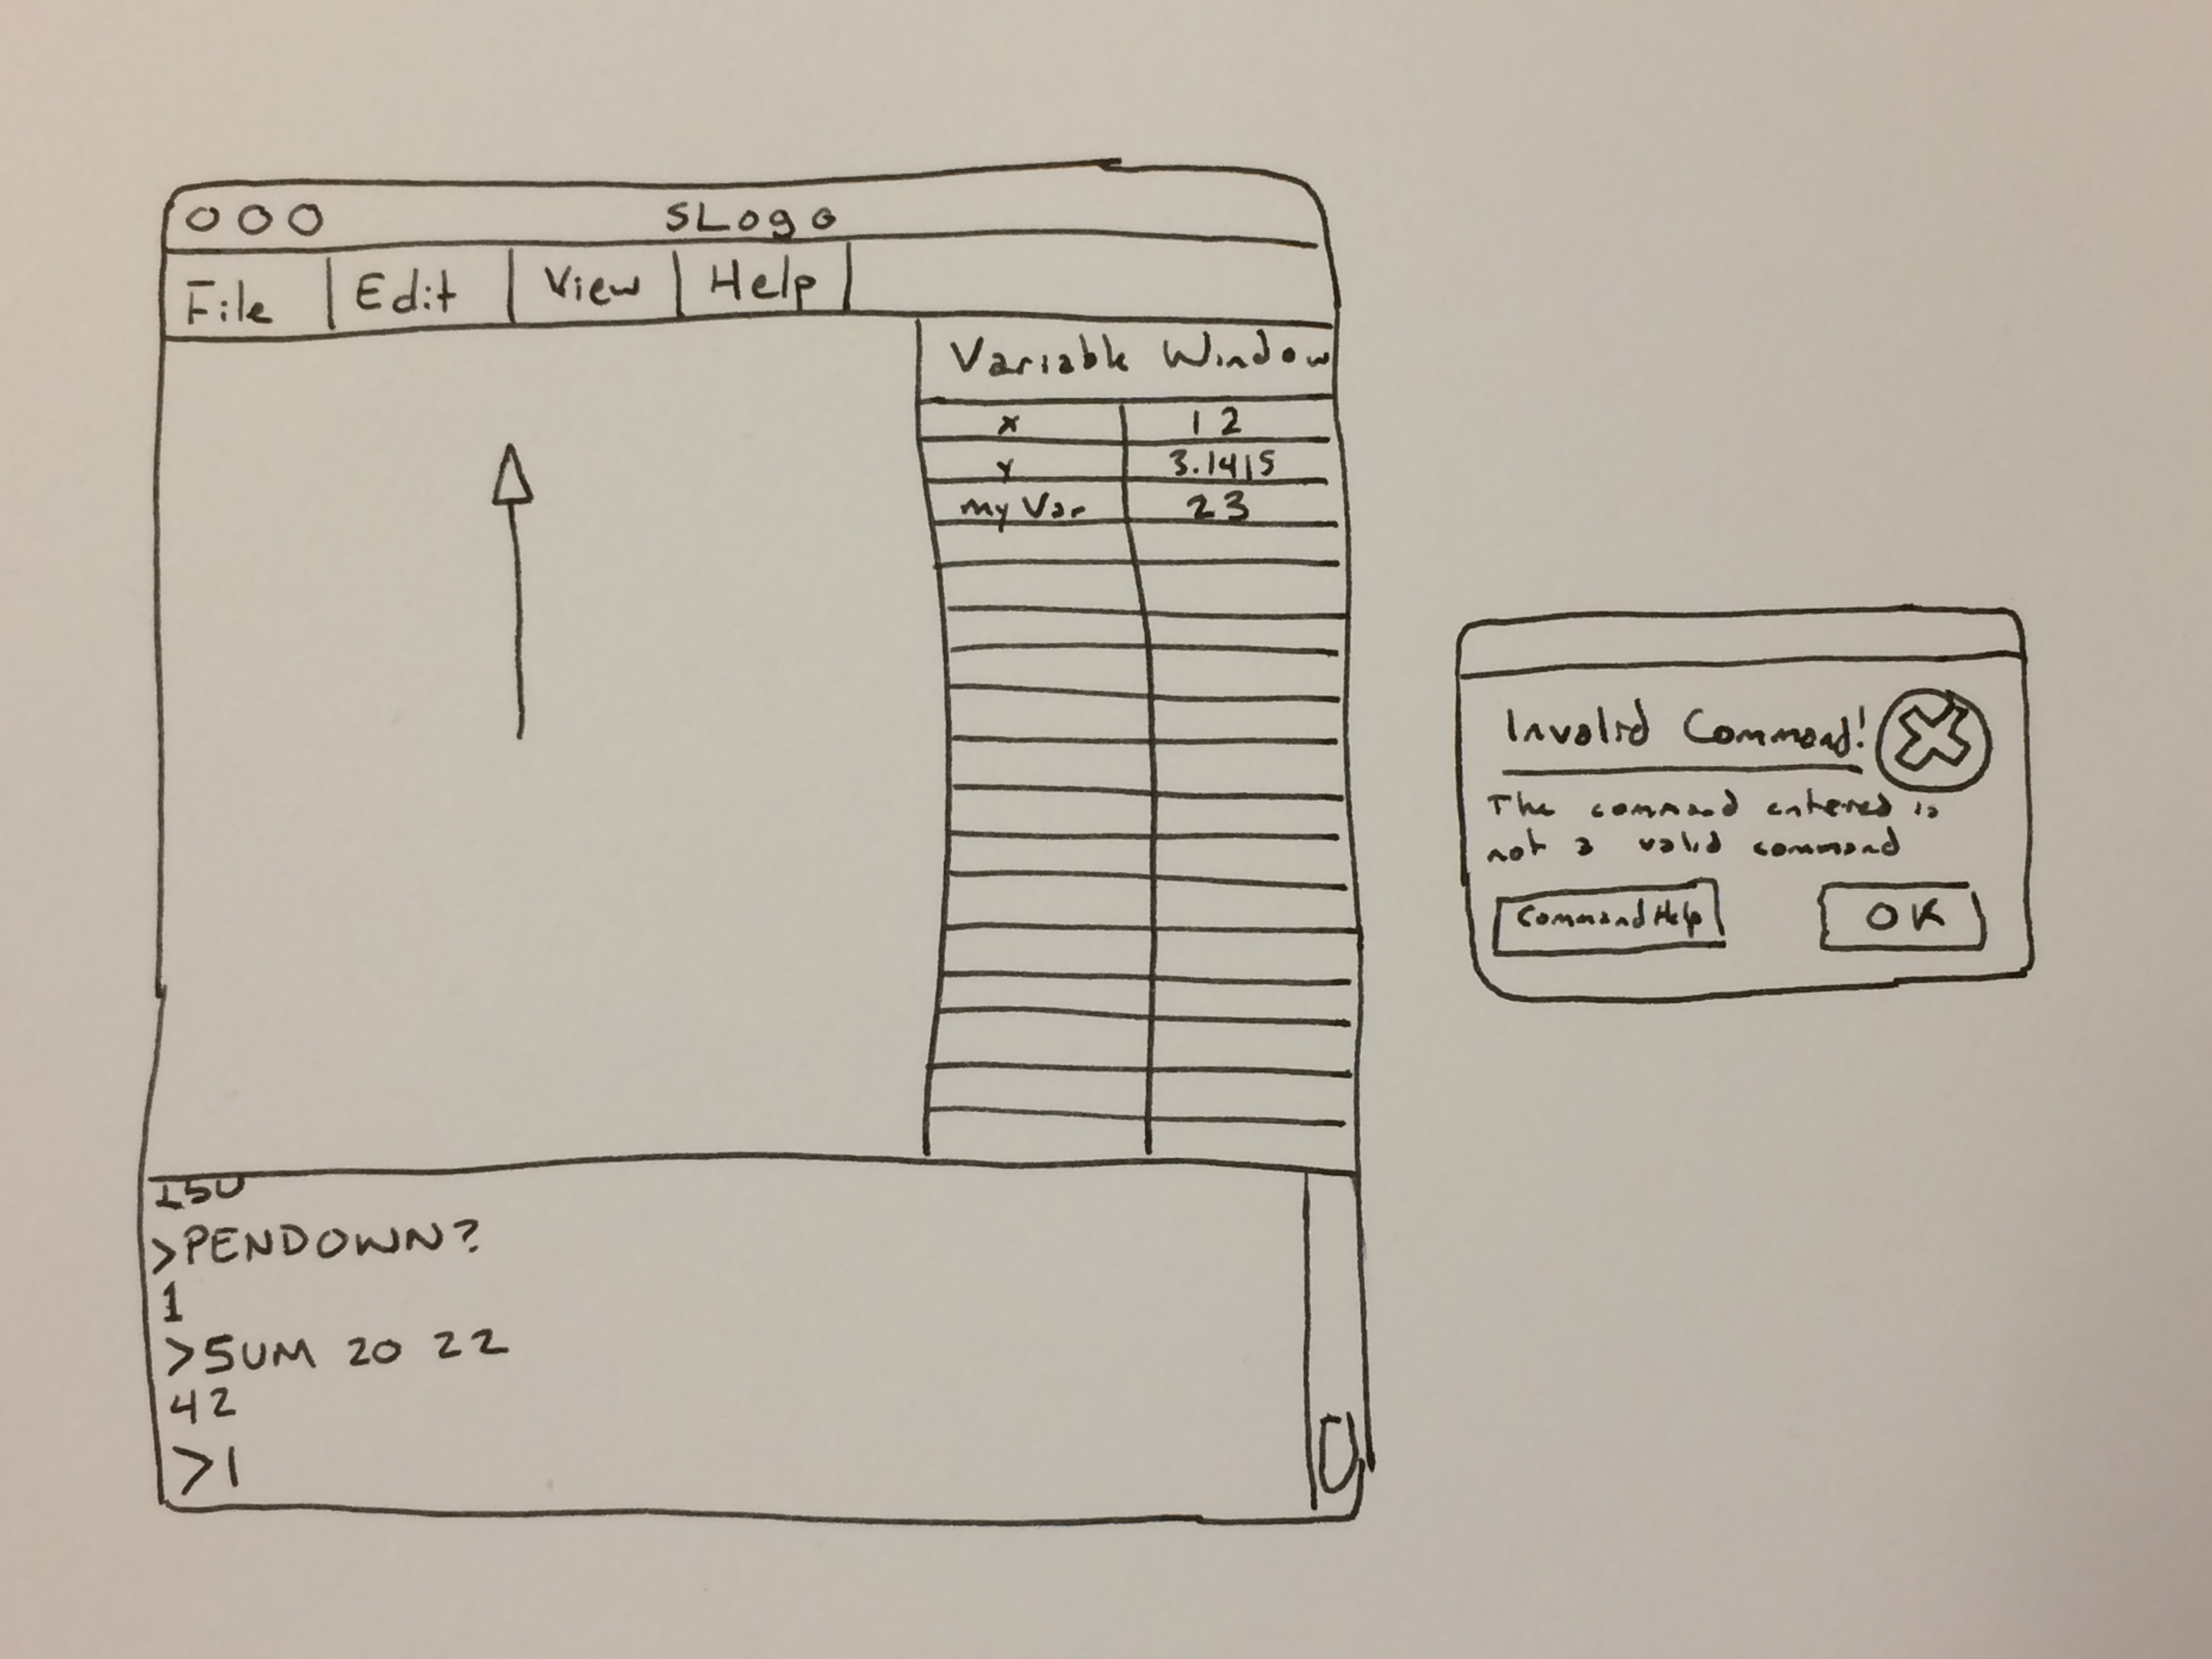 SLogo
File Edit View Help
Variable Window
x 12
y 3.1415
my Var 23
150
>PENDOWN?
1
>SUM 20 22
42
>|
Invalid Command!
The command entered is
not a valid command
Command Help OK